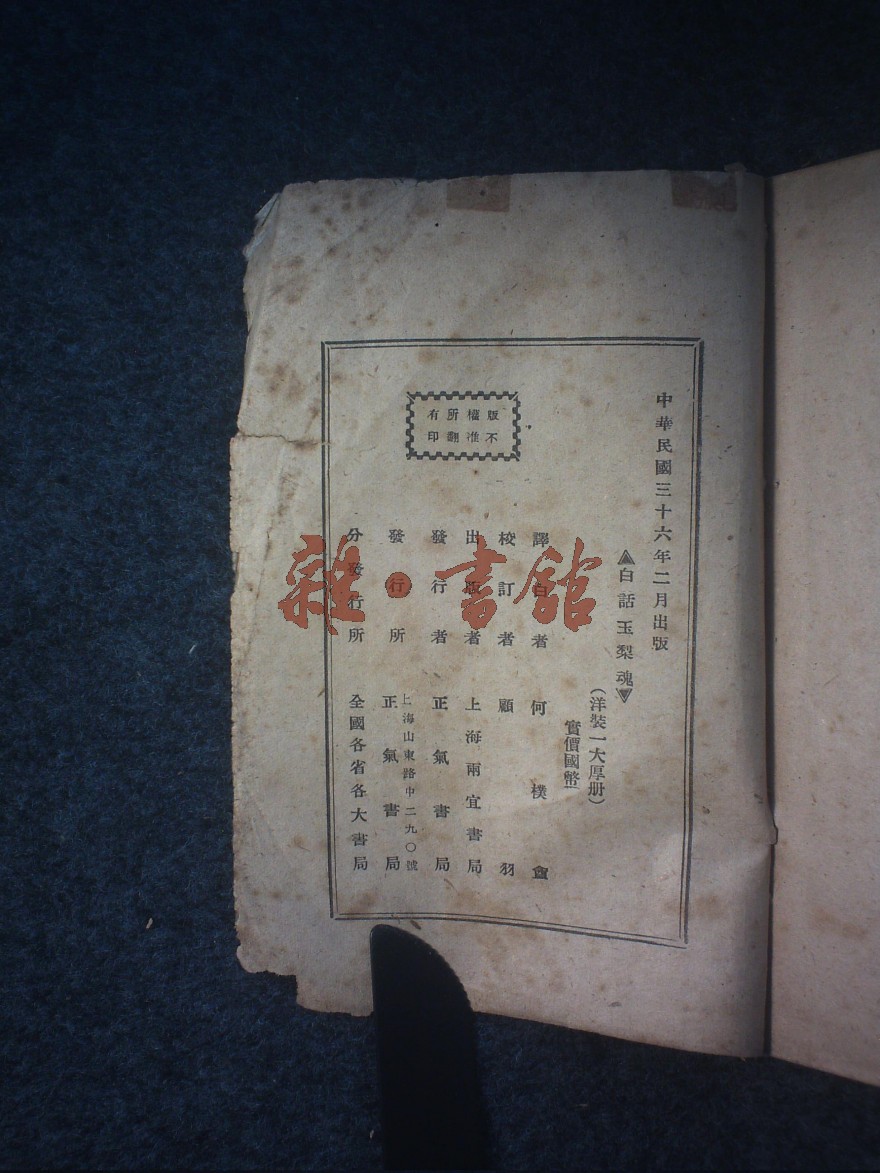 中華民國三十六年二月出版
▲白話玉梨魂▼
(洋裝一大厚册)
實價國幣
譯白者 何樸盦
校訂者 顧羽
出版者 上海兩宜書局
發行者 正氣書局
上海山東路中二九〇號
發行所 正氣書局
分發行所 全國各省各大書局
版權所有
不准翻印
雜·書館